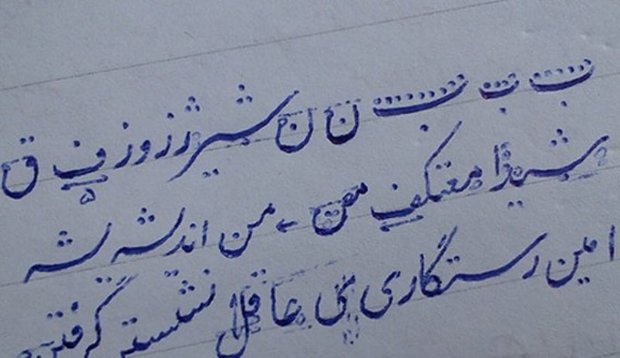 ب ب ب ن ن شیر ژ ز و ز ف ق
شیدا معتکف من اندیشه یشه
امین رستگاری بی عاقل نشسته گرفتن